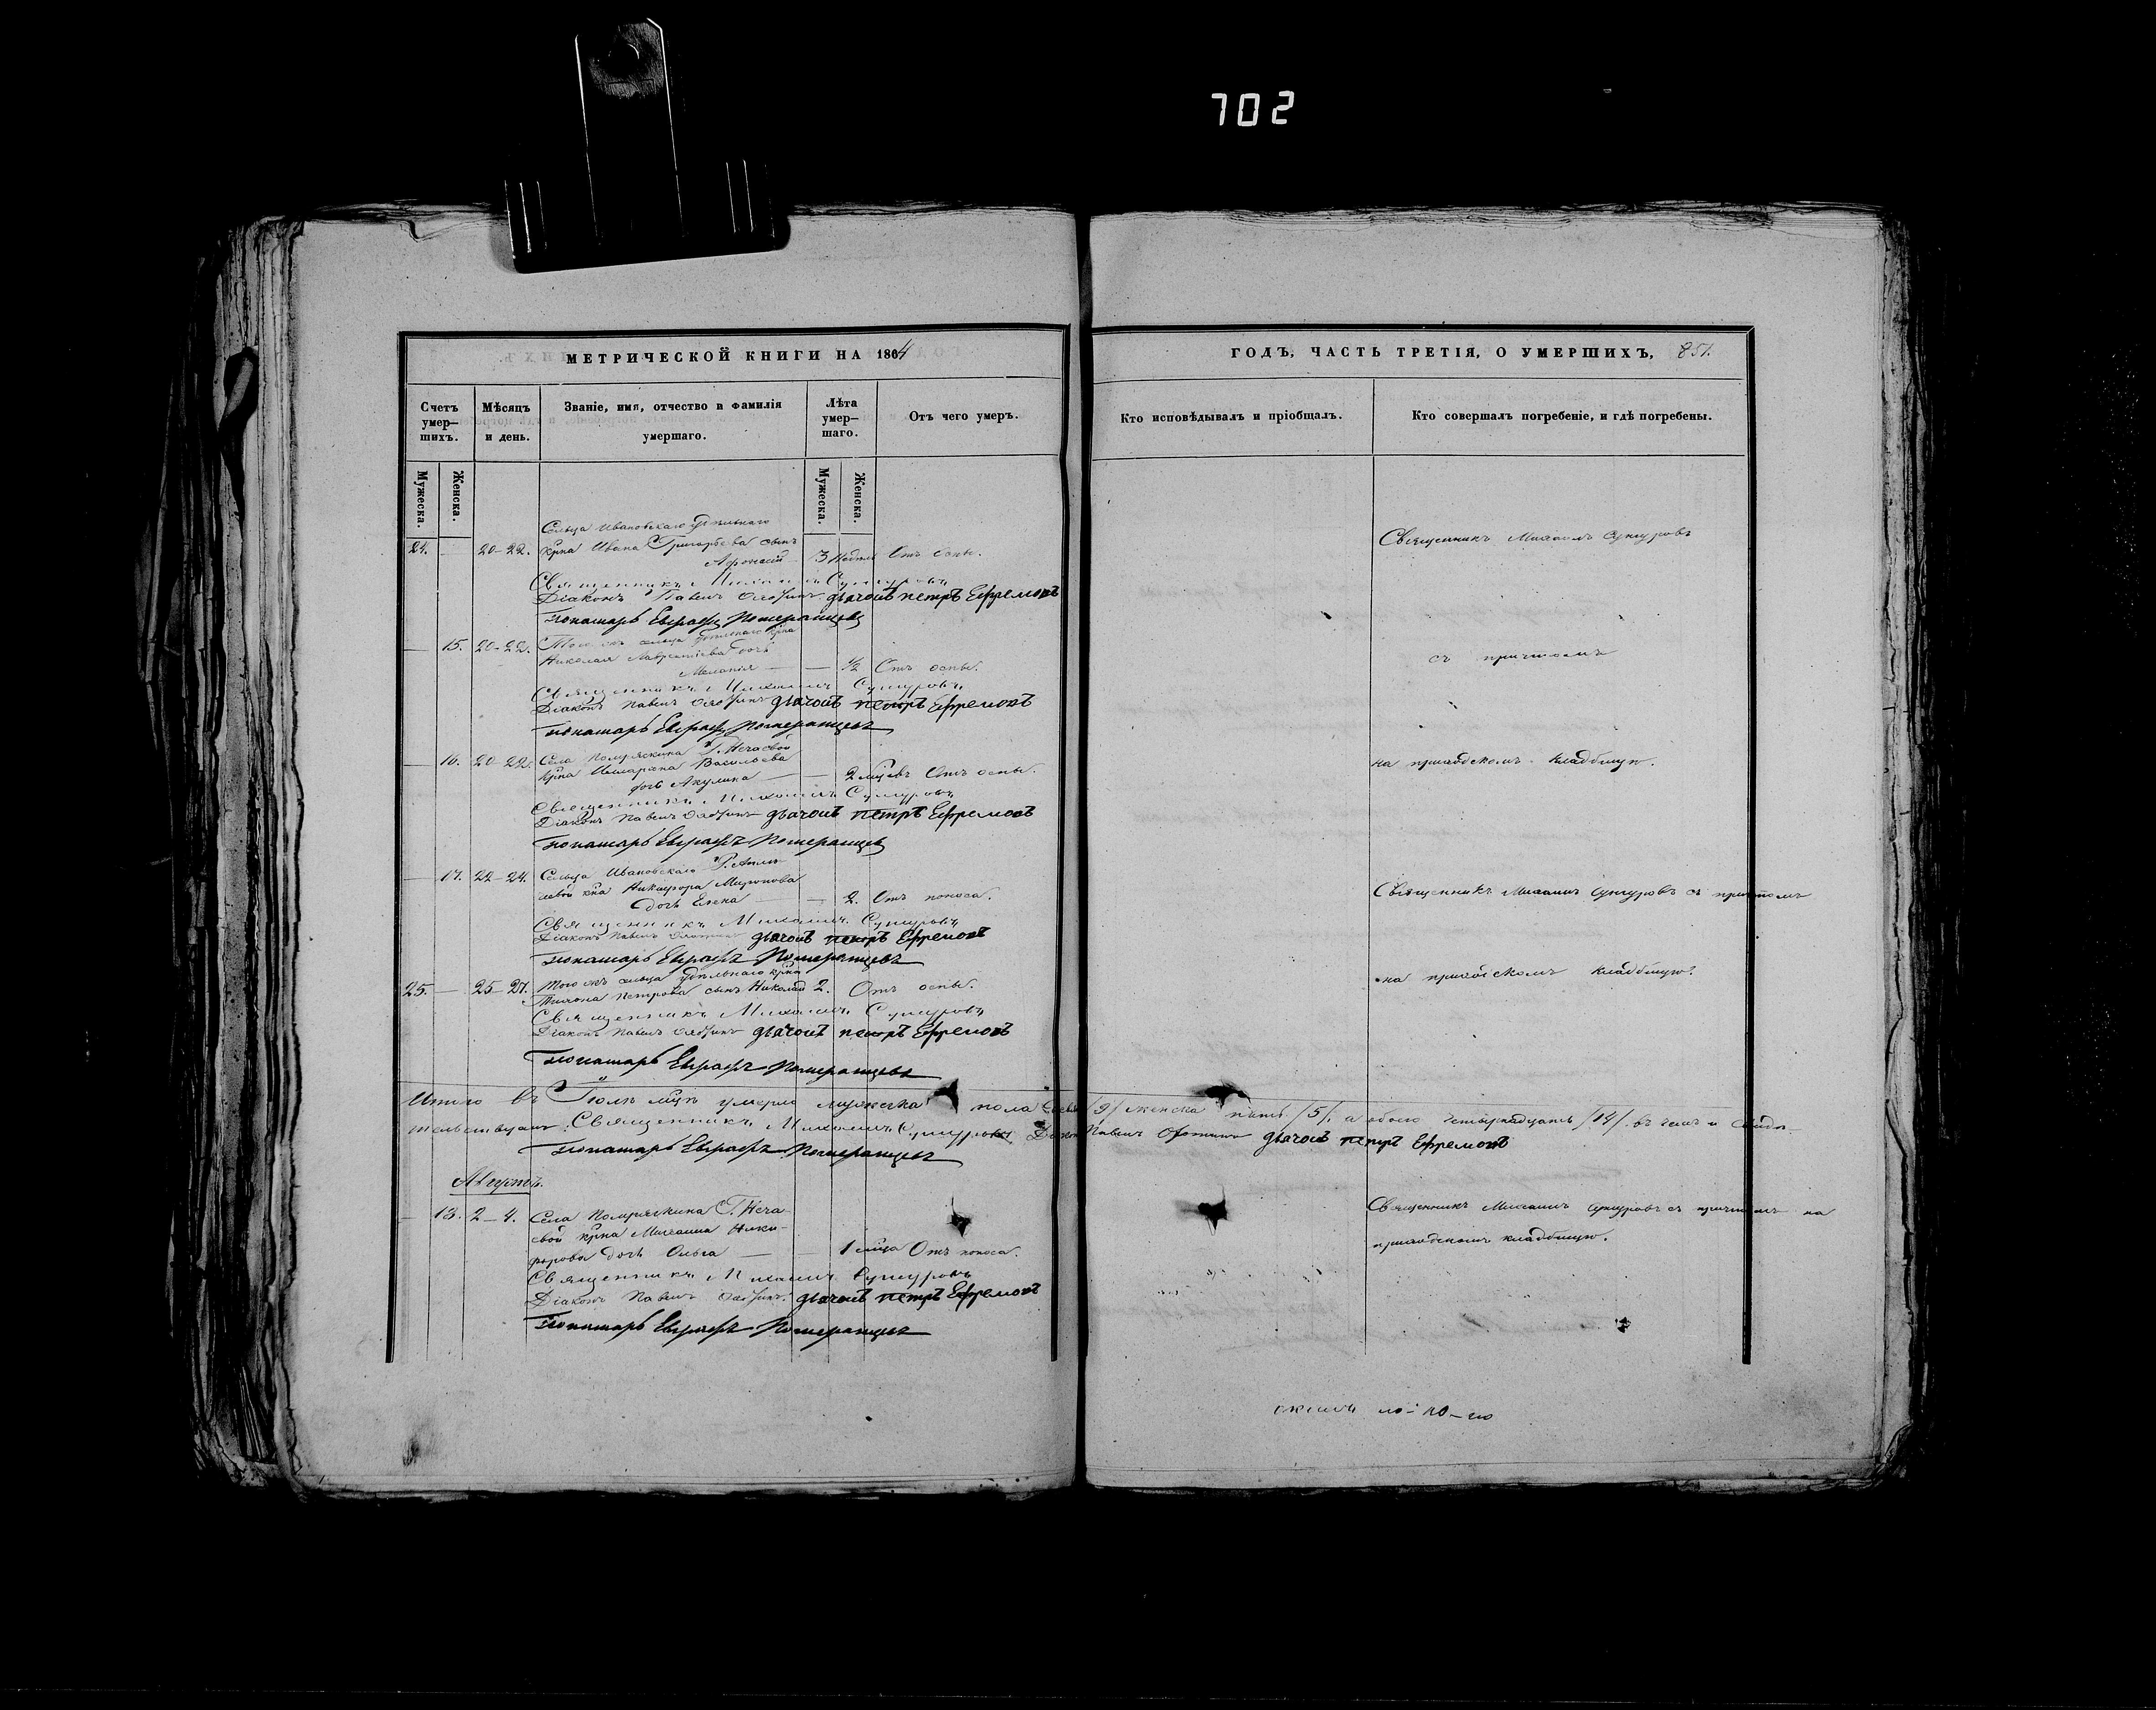 702
МЕТРИЧЕСКОЙ КНИГИ НА 1864
ГОДЪ, ЧАСТЬ ТРЕТІЯ, О УМЕРШИХЪ, 851.
Счетъ умер-шихъ.
Мѣсяцъ и день.
Званіе, имя, отчество и фамилія умершаго.
Лѣта умер-шаго.
Отъ чего умеръ.
Кто исповѣдывалъ и пріобщалъ.
Кто совершалъ погребеніе, и гдѣ погребены.
Мужеска.
Женска.
Мужеска.
Женска.
Сельца Ивановскаго удѣльнаго
24. — 20-22. крна Ивана Григорьева сынъ
Афонасій 3 недѣли Отъ оспы.
Священникъ Михаилъ Сунгуровъ
Священникъ Михаилъ Сунгуровъ
Діаконъ Павелъ дьячокъ петръ Ефремовъ
Понамарь Евграфъ Померанцевъ
— 15. 20-22. Того жъ сельца удѣльнаго крна
Николая Лаврентіева дочь
Меланія — — ½ Отъ оспы.
съ причтомъ
Священникъ Михаилъ Сунгуровъ
Діаконъ Павелъ дьячокъ петръ Ефремовъ
Понамарь Евграфъ Померанцевъ
— 16. 20-22. Села Помряскина Г. Нечаевой
крна Васильева
дочь Акулина — — 2 мцевъ Отъ оспы.
на приходскомъ кладбищѣ.
Священникъ Михаилъ Сунгуровъ
Діаконъ Павелъ дьячокъ петръ Ефремовъ
Понамарь Евграфъ Померанцевъ
— 17. 22-24. Сельца Ивановскаго Г.
крна Никифора Миронова
дочь Елена — — 2. Отъ поноса.
Священникъ Михаилъ Сунгуровъ съ причтомъ
Священникъ Михаилъ Сунгуровъ
Діаконъ Павелъ дьячокъ петръ Ефремовъ
Понамарь Евграфъ Померанцевъ
25. — 25-27. Того жъ сельца удѣльнаго крна
Петрова сынъ Николай 2. Отъ оспы.
на приходскомъ кладбищѣ.
Священникъ Михаилъ Сунгуровъ
Діаконъ Павелъ дьячокъ петръ Ефремовъ
Понамарь Евграфъ Померанцевъ
Итого въ Іюлѣ мцѣ умерло мужеска пола /9/ женска пять /5/, а обоего четырнадцать /14/. въ чемъ и свидѣ-
тельствуютъ: Священникъ Михаилъ Сунгуровъ Діаконъ Павелъ дьячокъ петръ Ефремовъ
Понамарь Евграфъ Померанцевъ
Августъ.
— 18. 2-4. Села Помряскина Г. Неча-
евой крна Михаила Ники-
форова дочь Ольга — — 1 мца Отъ поноса.
Священникъ Михаилъ Сунгуровъ съ причтомъ на
приходскомъ кладбищѣ.
Священникъ Михаилъ Сунгуровъ
Діаконъ Павелъ дьячокъ петръ Ефремовъ
Понамарь Евграфъ Померанцевъ